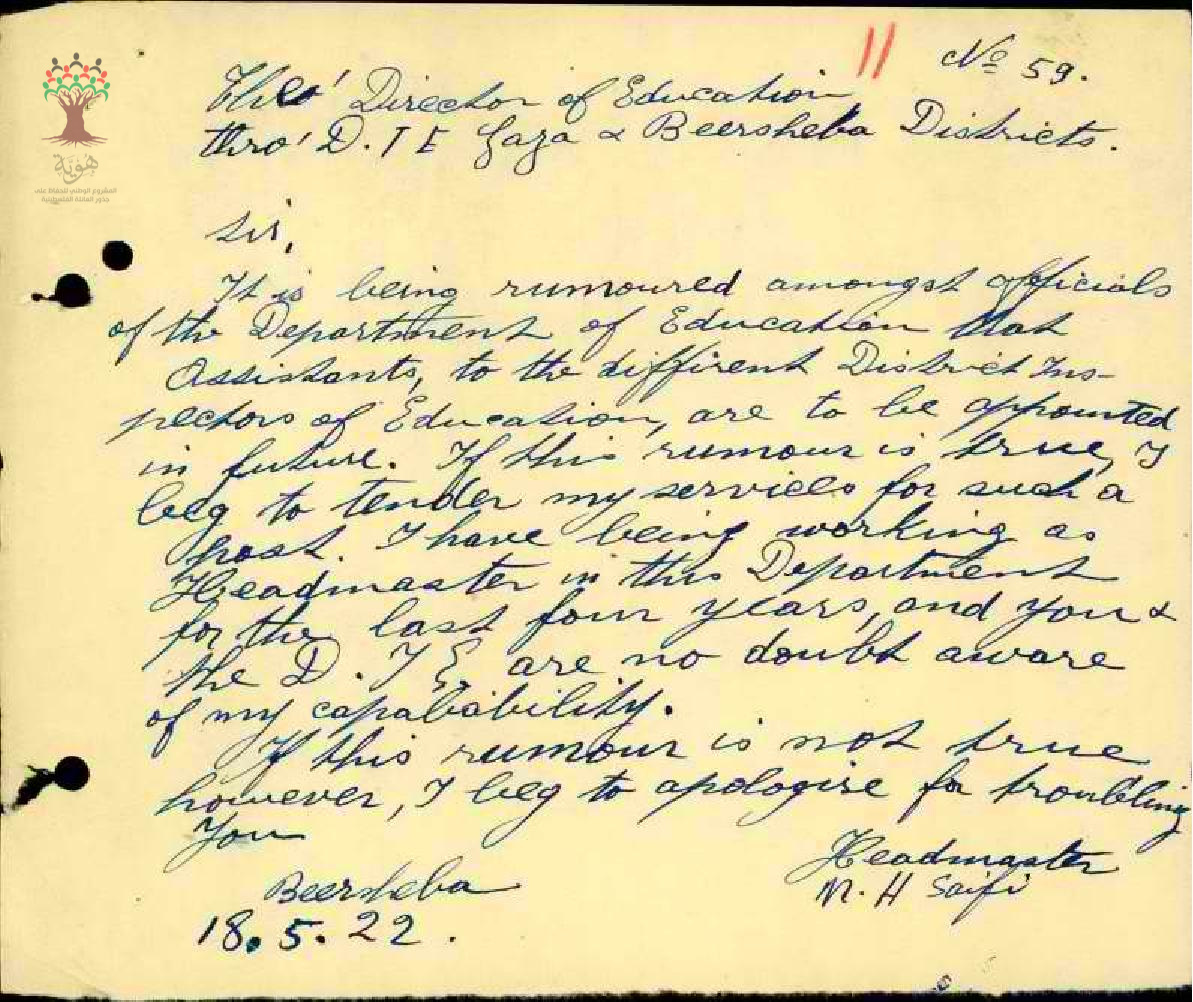 11
No 59.
The Director of Education
thro' D. I E Gaza & Beersheba Districts.
هوية
المشروع الوطني للحفاظ على
جذور العائلة الفلسطينية
Sir,
It is being rumoured amongst officials
of the Department of Education that
Assistants, to the diffirent District Ins-
pectors of Education, are to be appointed
in future. If this rumour is true, I
beg to tender my services for such a
post. I have being working as
Headmaster in this Department
for the last four years, and you &
the D. I E. are no doubt aware
of my capabability.
If this rumour is not true
however, I beg to apologise for troubling
You
Headmaster
M. H Saifi
Beersheba
18. 5. 22.